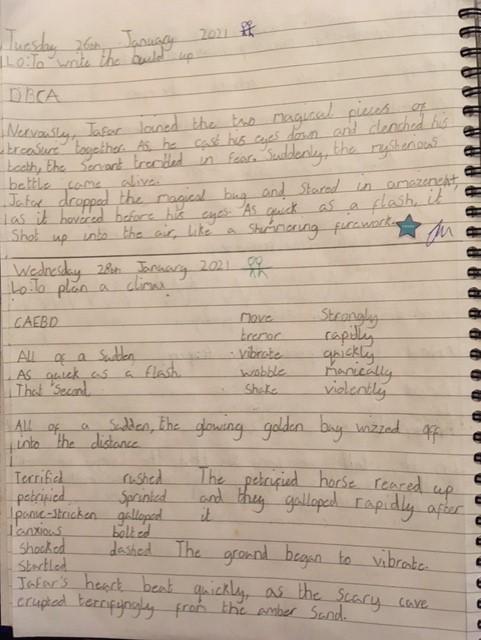 Tuesday 26th January 2021
Lo:To write the build up
DBCA
Nervously, Jafar Joined the two magical pieces of
treasure together. As, he cast his eyes down and clenched his
teeth, the Servant trembled in fear. Suddenly, the mysterious
bettle came alive.
Jafar dropped the magical bug and Stared in
as it hovered before his eyes. As quick as a flash, it
Shot up into the air, like a Shimmering firework.
Wednesday 28th January 2021
Lo:To plan a climax
CAEBD move Strongly
tremor rapidly
All of a Sudden vibrate quickly
As quick as a flash wobble manically
That Second Shake violently
All of a Sudden, the glowing golden bug wizzed off
into the distance
Terrified rushed The petrified horse reared up
petrified Sprinted and they galloped rapidly after
panic-stricken galloped it
anxious bolted
Shocked dashed The ground began to vibrate.
Startled
Jafar's heart beat quickly, as the Scary cave
erupted terrifyngly from the amber Sand.